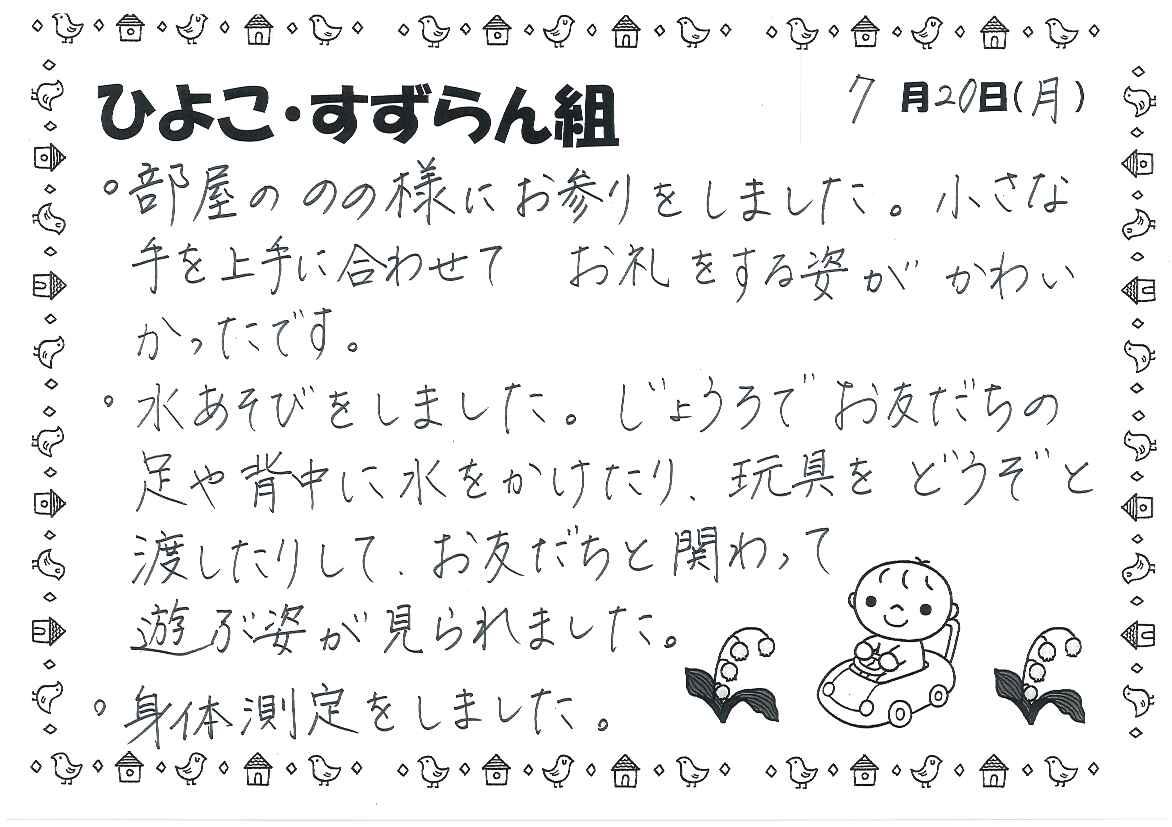 ひよこ・すずらん組
7月20日(月)
。部屋の のの様にお参りをしました。小さな
手を上手に合わせて お礼をする姿が かわい
かったです。
。水あそびをしました。じょうろで お友だちの
足や背中に水をかけたり、玩具を どうぞと
渡したりして、お友だちと関わって
遊ぶ姿が見られました。
。身体測定をしました。